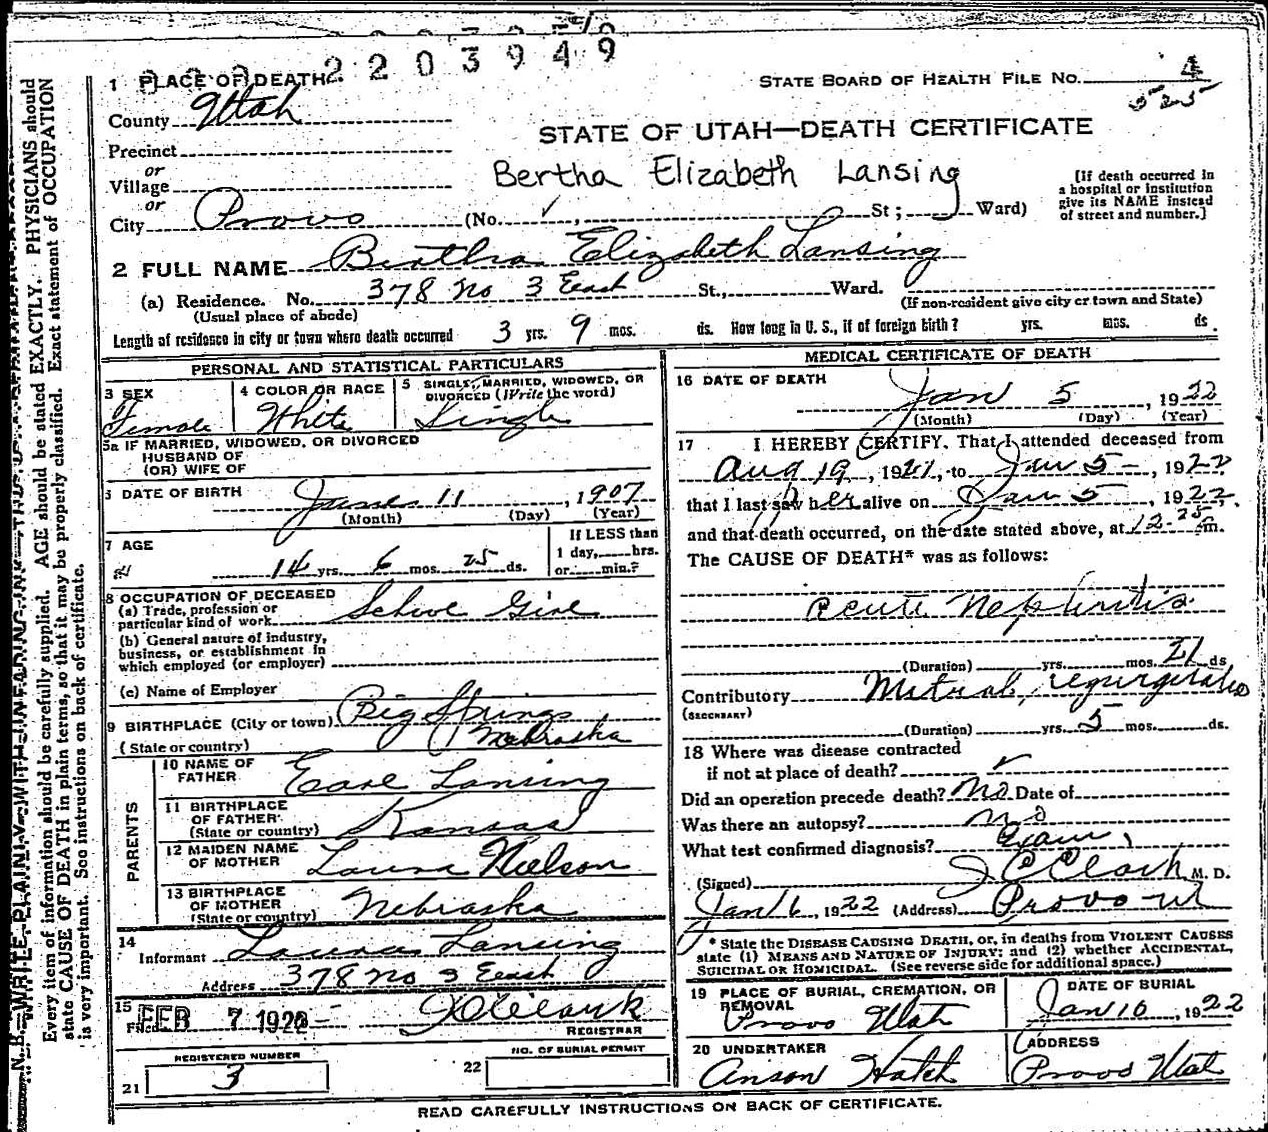 2 2 0 3 9 4 9
1 PLACE OF DEATH
STATE BOARD OF HEALTH FILE No. 4
525
County Utah
STATE OF UTAH—DEATH CERTIFICATE
Precinct
or
Village
Bertha Elizabeth Lansing
[If death occurred in
a hospital or institution
give its NAME instead
of street and number.]
or
City Provo (No. ✓, St; Ward)
2 FULL NAME Bertha Elizabeth Lansing
(a) Residence. No. 378 No 3 East St., Ward.
(Usual place of abode) (If non-resident give city or town and State)
Length of residence in city or town where death occurred 3 yrs. 9 mos. ds. How long in U. S., if of foreign birth? yrs. mos. ds.
PERSONAL AND STATISTICAL PARTICULARS
3 SEX
Female
4 COLOR OR RACE
White
5 SINGLE, MARRIED, WIDOWED, OR
DIVORCED (Write the word)
Single
5a IF MARRIED, WIDOWED, OR DIVORCED
HUSBAND OF
(OR) WIFE OF
DATE OF BIRTH 11, 1907
(Month) (Day) (Year)
7 AGE
14 yrs. 6 mos. 25 ds.
If LESS than
1 day, hrs.
or min.?
8 OCCUPATION OF DECEASED
(a) Trade, profession or
particular kind of work School Girl
(b) General nature of industry,
business, or establishment in
which employed (or employer)
(c) Name of Employer
9 BIRTHPLACE (City or town) Big Springs
(State or country) Nebraska
PARENTS
10 NAME OF
FATHER Earl Lansing
11 BIRTHPLACE
OF FATHER
(State or country) Kansas
12 MAIDEN NAME
OF MOTHER Laura Nielson
13 BIRTHPLACE
OF MOTHER
(State or country) Nebraska
14
Informant Laura Lansing
Address 378 No 3 East
15
Filed FEB 7 1922
REGISTRAR
REGISTERED NUMBER
21 3
NO. OF BURIAL PERMIT
22
MEDICAL CERTIFICATE OF DEATH
16 DATE OF DEATH
Jan 5, 1922
(Month) (Day) (Year)
17 I HEREBY CERTIFY, That I attended deceased from
Aug 19, 1921, to Jan 5, 1922
that I last saw her alive on Jan 5, 1922,
and that death occurred, on the date stated above, at 12-25 m.
The CAUSE OF DEATH* was as follows:
Acute Nephritis
(Duration) yrs. mos. 21 ds
Contributory Mitral regurgitation
(SECONDARY)
(Duration) yrs. 5 mos. ds.
18 Where was disease contracted
if not at place of death? ✓
Did an operation precede death? No Date of
Was there an autopsy? no
What test confirmed diagnosis? Exam
(Signed) M. D.
Jan 6, 1922 (Address) Provo Ut
* State the DISEASE CAUSING DEATH, or, in deaths from VIOLENT CAUSES
state (1) MEANS AND NATURE OF INJURY; and (2) whether ACCIDENTAL,
SUICIDAL OR HOMICIDAL. (See reverse side for additional space.)
19 PLACE OF BURIAL, CREMATION, OR
REMOVAL
Provo Utah
DATE OF BURIAL
Jan 10, 1922
20 UNDERTAKER
Anson Hatch
ADDRESS
Provo Utah
READ CAREFULLY INSTRUCTIONS ON BACK OF CERTIFICATE.
N. B.—WRITE PLAINLY WITH UNFADING INK—THIS IS A PERMANENT
Every item of information should be carefully supplied. AGE should be stated EXACTLY. PHYSICIANS should
state CAUSE OF DEATH in plain terms, so that it may be properly classified. Exact statement of OCCUPATION
is very important. See instructions on back of certificate.